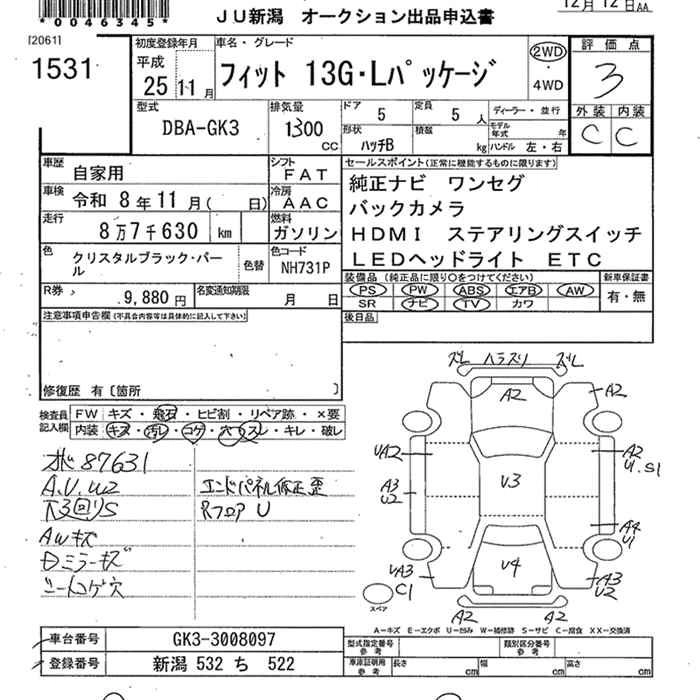 *0046345*
12月12日AA
JU新潟 オークション出品申込書
[2061]
1531
初度登録年月
平成
25 11月
車名・グレード
フィット 13G・Lパッケージ
2WD
・
4WD
評価点
3
型式
DBA-GK3
排気量
1300
CC
ドア
5
定員
5
人
ディーラー・並行
形状
ハッチB
積載
kg
モデル年式
年
ハンドル 左・右
外装 内装
C C
車歴
自家用
シフト
FAT
車検
令和 8年11月( 日)
冷房
AAC
走行
8万7千630 km
燃料
ガソリン
色
クリスタルブラック・パール
色替
色コード
NH731P
R券
9,880円
名変通知期限
月 日
セールスポイント(正常に機能するものに限ります)
純正ナビ ワンセグ
バックカメラ
HDMI ステアリングスイッチ
LEDヘッドライト ETC
装備品 (純正品に限り○をつけてください)
PS PW ABS エアB AW
SR ナビ TV カワ
新車保証書
有・無
後日品
注意事項申告欄(不具合内容等は具体的に記入して下さい)
修復歴 有〔箇所 〕
検査員
記入欄
FW キズ・飛石・ヒビ割・リペア跡・×要
内装 キズ・汚レ・コゲ・穴・スレ・キレ・破レ
87631
A.U.U2
下3回りS
AWキズ
Dミラーキズ
シートコゲ穴
エンドパネル修正歪
Rフロア U
ズレ ハラスリ ズレ
A2
A2
UA2
A2
U.S1
A3
U2
U3
A4
U1
UA3
C1
U4
A3
U2
A2
A2
スペア
A-キズ E-エクボ U-凹み W-補修跡 S-サビ C-腐食 XX-交換済
車台番号
GK3-3008097
登録番号
新潟 532 ち 522
型式指定番号
参考
類別区分番号
参考
車庫証明用
参考
長さ
cm
幅
cm
高さ
cm